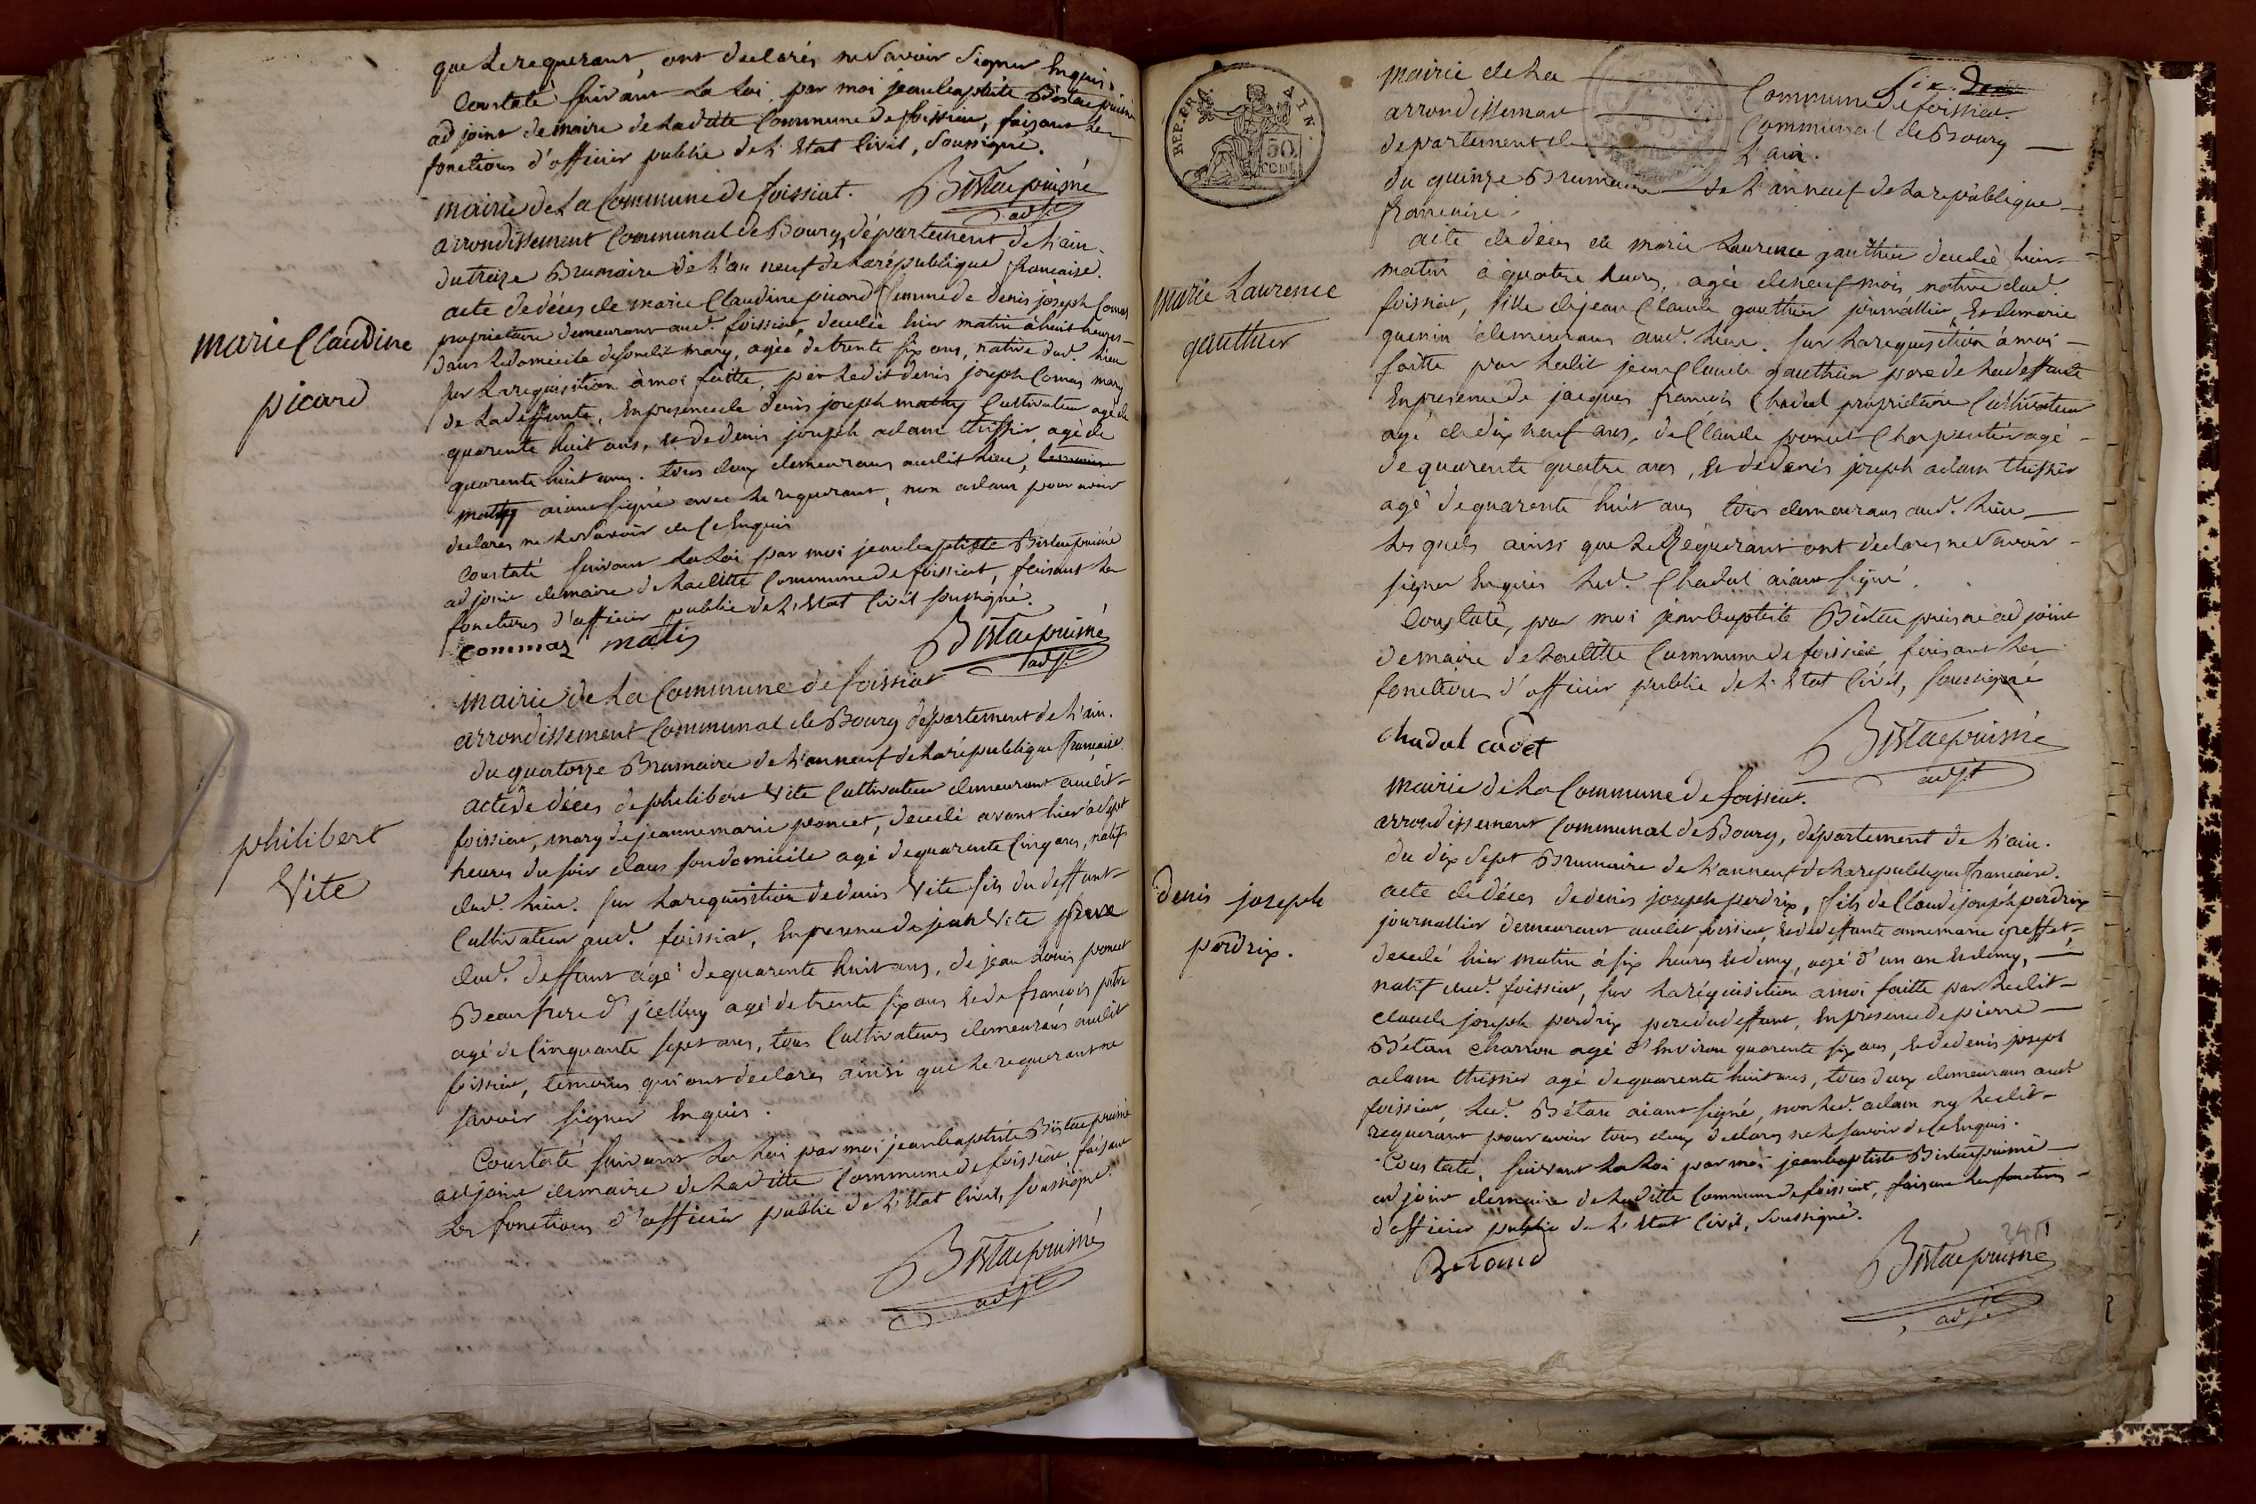 que le requerant, ont declarés ne savoir signer Enquis.
Constaté suivant La Loi, par moi jean baptiste Bistac puisné
adjoint de maire de Laditte Commune de foissiat, faisant Les
fonctions d'officier public de L'Etat Civil, Soussigné.
Bistac puisné
adjt
mairie de La Commune de foissiat.
arrondissement Communal de Bourg, département de L'ain.
du treize Brumaire de L'an neuf de La république française.
marie Claudine
picard
acte de décès de marie Claudine picard femme de denis joseph Comas
proprietaire demeurant aud. foissiat, decedée hier matin à huit heures
dans Le domicile de sondit mary, agée de trente six ans, native dud. Lieu
sur La requisition à moi faitte, par Ledit denis joseph Comas mary
de La deffunte, En presence de denis joseph mathy Cultivateur agé de
quarente huit ans, et de denis joseph adam thissier agé de
quarente huit ans. tous deux demeurans audit Lieu,
mathy aiant signé avec Le requerant, non adam pour avoir
declaré ne Le Savoir de Ce Enquis
Constaté suivant La Loi par moi jean baptiste Bistac puisné
adjoint de maire de Laditte Commune de foissiat, faisant Les
fonctions d'officier public de L'Etat Civil sussigné.
commas matis
Bistac puisné
adjt
mairie de La Commune de foissiat
arrondissement Communal de Bourg département de L'ain.
du quatorze Brumaire de L'an neuf de La république française.
philibert
Vite
acte de décès de philibert Vite Cultivateur demeurant audit
foissiat, mary de jeanne marie poncet, decedé avant hier à sept
heures du soir dans son domicile agé de quarente Cinq ans, natif
dud. Lieu. sur La requisition de denis Vite fils du deffunt
Cultivateur aud. foissiat, En presence de jean Vite frere
dud. deffunt agé de quarente huit ans, de jean Louis poncet
Beaufrere d'jcelluy agé de trente six ans et de françois
agé de Cinquante sept ans, tous Cultivateurs demeurans audit
foissiat, temoins qui ont declarés ainsi que Le requerant ne
savoir signer Enquis.
Constaté suivant La Loi par moi jean baptiste Bistac puisné
adjoint de maire de Laditte Commune de foissiat, faisant
Les fonctions d'officier public de L'Etat Civil, soussigné.
Bistac puisné
adjt
REP. FRA.
50.
CENT.
mairie de La Commune de foissiat.
arrondissement Communal de Bourg
departement de L'ain.
du quinze Brumaire de L'an neuf de La république
francaise.
marie Laurence
gauthier
acte de deces de marie Laurence gauthier decedée hier
matin à quatre heures, agée de neuf mois native dud.
foissiat, fille de jean Claude gauthier journallier, Et de marie
quenin demeurans aud. Lieu. sur La requisition à moi
faitte par Ledit jean Claude gauthier pere de La deffunte
En presence de jacques francois Chadal propriétaire Cultivateur
agé de dix neuf ans, de Claude poncet Charpentier agé
de quarente quatre ans, Et de denis joseph adam thissier
agé de quarente huit ans tous demeurans aud. Lieu
Les quels ainsi que Le Requerant ont declarés ne Savoir
signer Enquis Led. Chadal aiant signé.
Constaté, par moi jean baptiste Bistac puisné adjoint
de maire de Laditte Commune de foissiat faisant Les
fonctions d'officier public de L'Etat Civil, soussigné
chadal cadet
Bistac puisné
adjt
mairie de La Commune de foissiat.
arrondissement Communal de Bourg, département de L'ain.
du dix Sept Brumaire de L'an neuf de La republique francaise.
denis joseph
perdrix.
acte de décès de denis joseph perdrix, fils de Claude joseph perdrix
journallier demeurant audit foissiat, et de deffunte anne marie greffet
decedé hier matin à six heures et demy, agé d'un an Et demy,
natif dud. foissiat, sur La réquisition a moi faitte par Ledit
claude joseph perdrix pere du deffunt, En presence de pierre
Bétan charron agé d'Environ quarente six ans, et de denis joseph
adam thissier agé de quarente huit ans, tous deux demeurans aud
foissiat, Led. Bétan aiant signé, non Led. adam ny Ledit
requerant pour avoir tous deux declarés ne Le savoir de Ce Enquis.
Constaté, suivant La Loi par moi jean baptiste Bistac puisné
adjoint de maire de Laditte Commune de foissiat, faisant Les fonctions
d'officier public de L'Etat Civil, Soussigné.
Betand
Bistac puisné
adjt